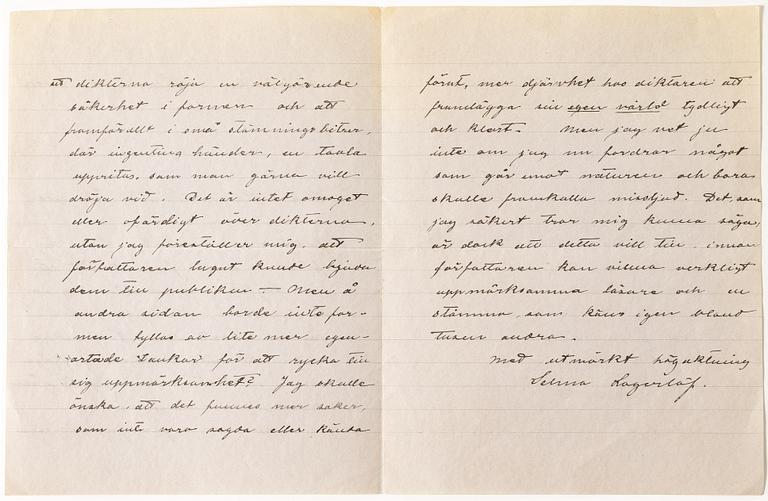 att dikterna röja en välgörande
säkerhet i formen och att
framförallt i små stämningsbitar,
där ingenting händer, en tavla
uppritas, som man gärna vill
dröja vid. Det är intet omoget
eller ofärdigt öfver dikterna,
utan jag föreställer mig, att
författaren lugnt kunde bjuda
dem till publiken — Men å
andra sidan borde inte for-
men fyllas av lite mer egen-
artade tankar för att rycka till
sig uppmärksamhet? Jag skulle
önska, att det funnes mer saker,
som inte voro sagda eller kända
förut, mer djärvhet hos diktaren att
framlägga sin egen värld tydligt
och klart. Men jag vet ju
inte om jag nu fordrar något
som går emot naturen och bara
skulle framkalla missljud. Det, som
jag säkert tror mig kunna säga,
är dock att detta vill till, innan
författaren kan vinna verkligt
uppmärksamma läsare och en
stämma, som käns igen bland
tusen andra.
Med utmärkt högaktning
Selma Lagerlöf.